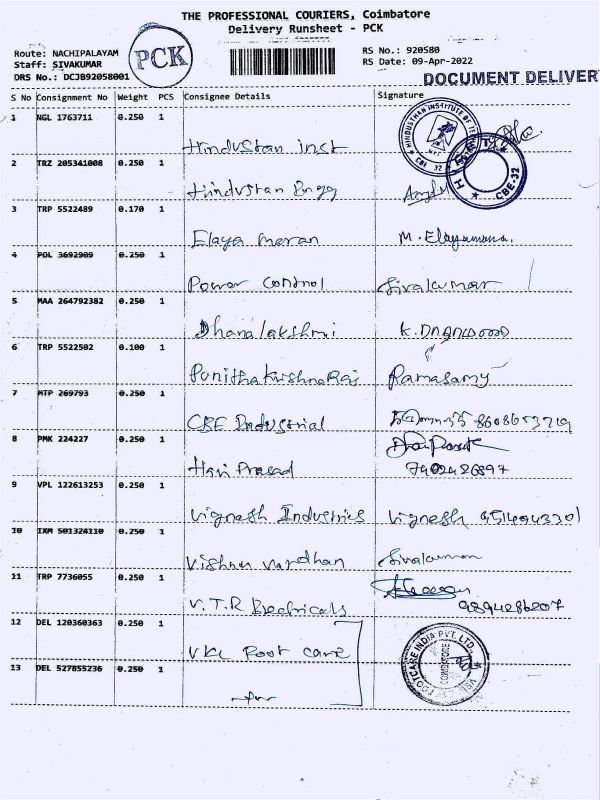 THE PROFESSIONAL COURIERS, Coimbatore
Delivery Runsheet - PCK
Route: NACHIPALAYAM
Staff: SIVAKUMAR
DRS No.: DCJB92058001
PCK
RS No.: 920580
RS Date: 09-Apr-2022
DOCUMENT DELIVER
S No Consignment No Weight PCS Consignee Details Signature
1 NGL 1763711 0.250 1
Hindustan inst
2 TRZ 205341008 0.250 1
Hindustan Engg
3 TRP 5522489 0.170 1
Elaya maran M. Elayamaran.
4 POL 3692909 0.250 1
Power control Sivakumar
5 MAA 264792382 0.250 1
Dhanalakshmi
6 TRP 5522502 0.100 1
PunithakrishnaRaj Ramasamy
7 MTP 269793 0.250 1
CBE Industrial
8 PMK 224227 0.250 1
Hari Prasad 7402426897
9 VPL 122613253 0.250 1
Vignesh Industries Vignesh
10 IXM 501324110 0.250 1
Vishnu vardhan Sivakumar
11 TRP 7736055 0.250 1
V.T.R Electricals 9894286207
12 DEL 120360363 0.250 1
VKC Foot care
13 DEL 527855236 0.250 1
HINDUSTHAN INSTITUTE OF TE
CBE 32
CBE-32
FOOTCARE INDIA PVT. LTD.
COIMBATORE